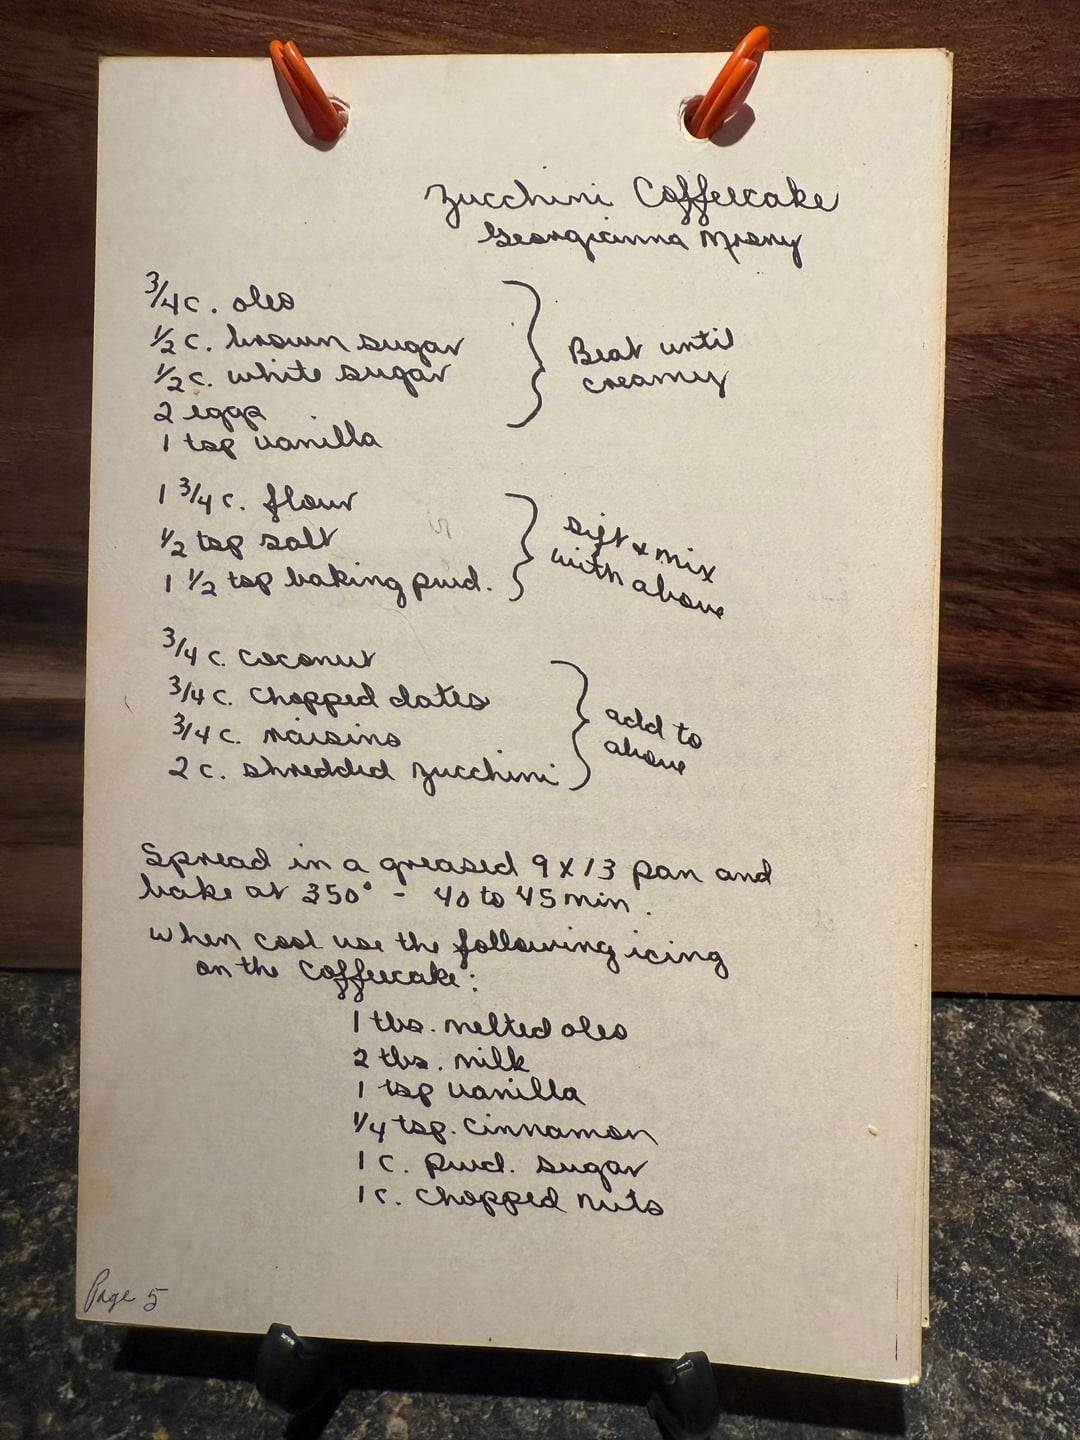 Zucchini Coffeecake
Georgianna Mrozny
3/4 c. oleo
1/2 c. brown sugar
1/2 c. white sugar
2 eggs
1 tsp vanilla
Beat until
creamy
1 3/4 c. flour
1/2 tsp salt
1 1/2 tsp baking pwd.
sift & mix
with above
3/4 c. coconut
3/4 c. chopped dates
3/4 c. raisins
2 c. shredded zucchini
add to
above
Spread in a greased 9 X 13 pan and
bake at 350° - 40 to 45 min.
When cool use the following icing
on the coffeecake:
1 tbs. melted oleo
2 tbs. milk
1 tsp vanilla
1/4 tsp. cinnamon
1 c. pwd. sugar
1 c. chopped nuts
Page 5